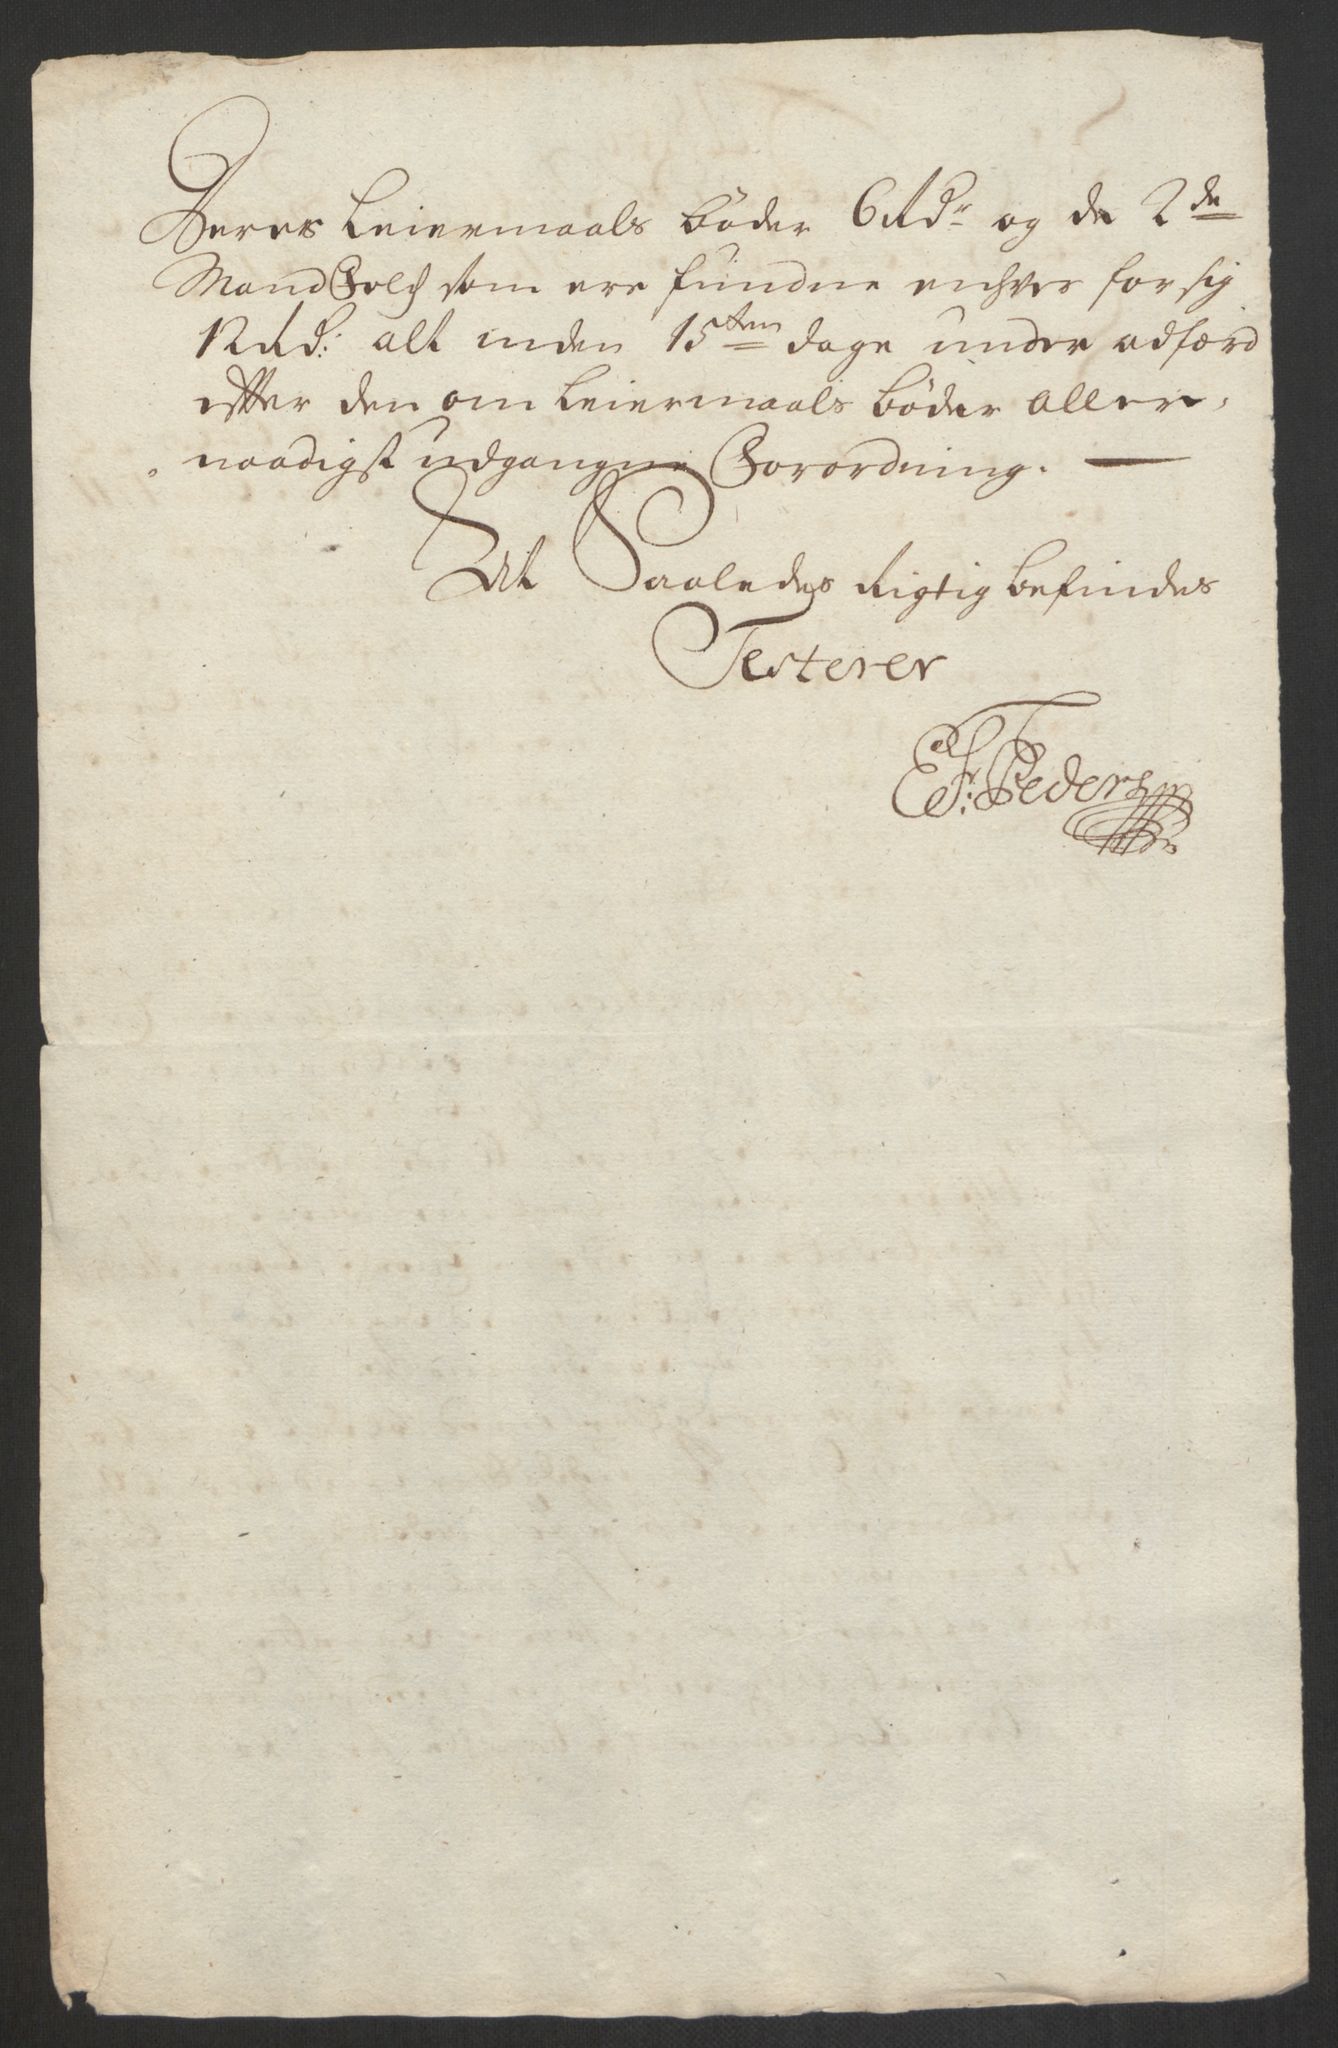 Deres Leiermaals bøder 6 Rdr og de 2de
Mand Folch som ere fundne enhver for sig
12 Rd: alt inden 15ten dage under adfærd
efter den om Leiermaals bøder aller-
naadigst udgangne Forordning. —
At Saaledes Rigtig befindes
Testerer
E Fr: Pedersen